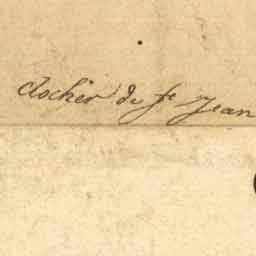 clocher de st Jean